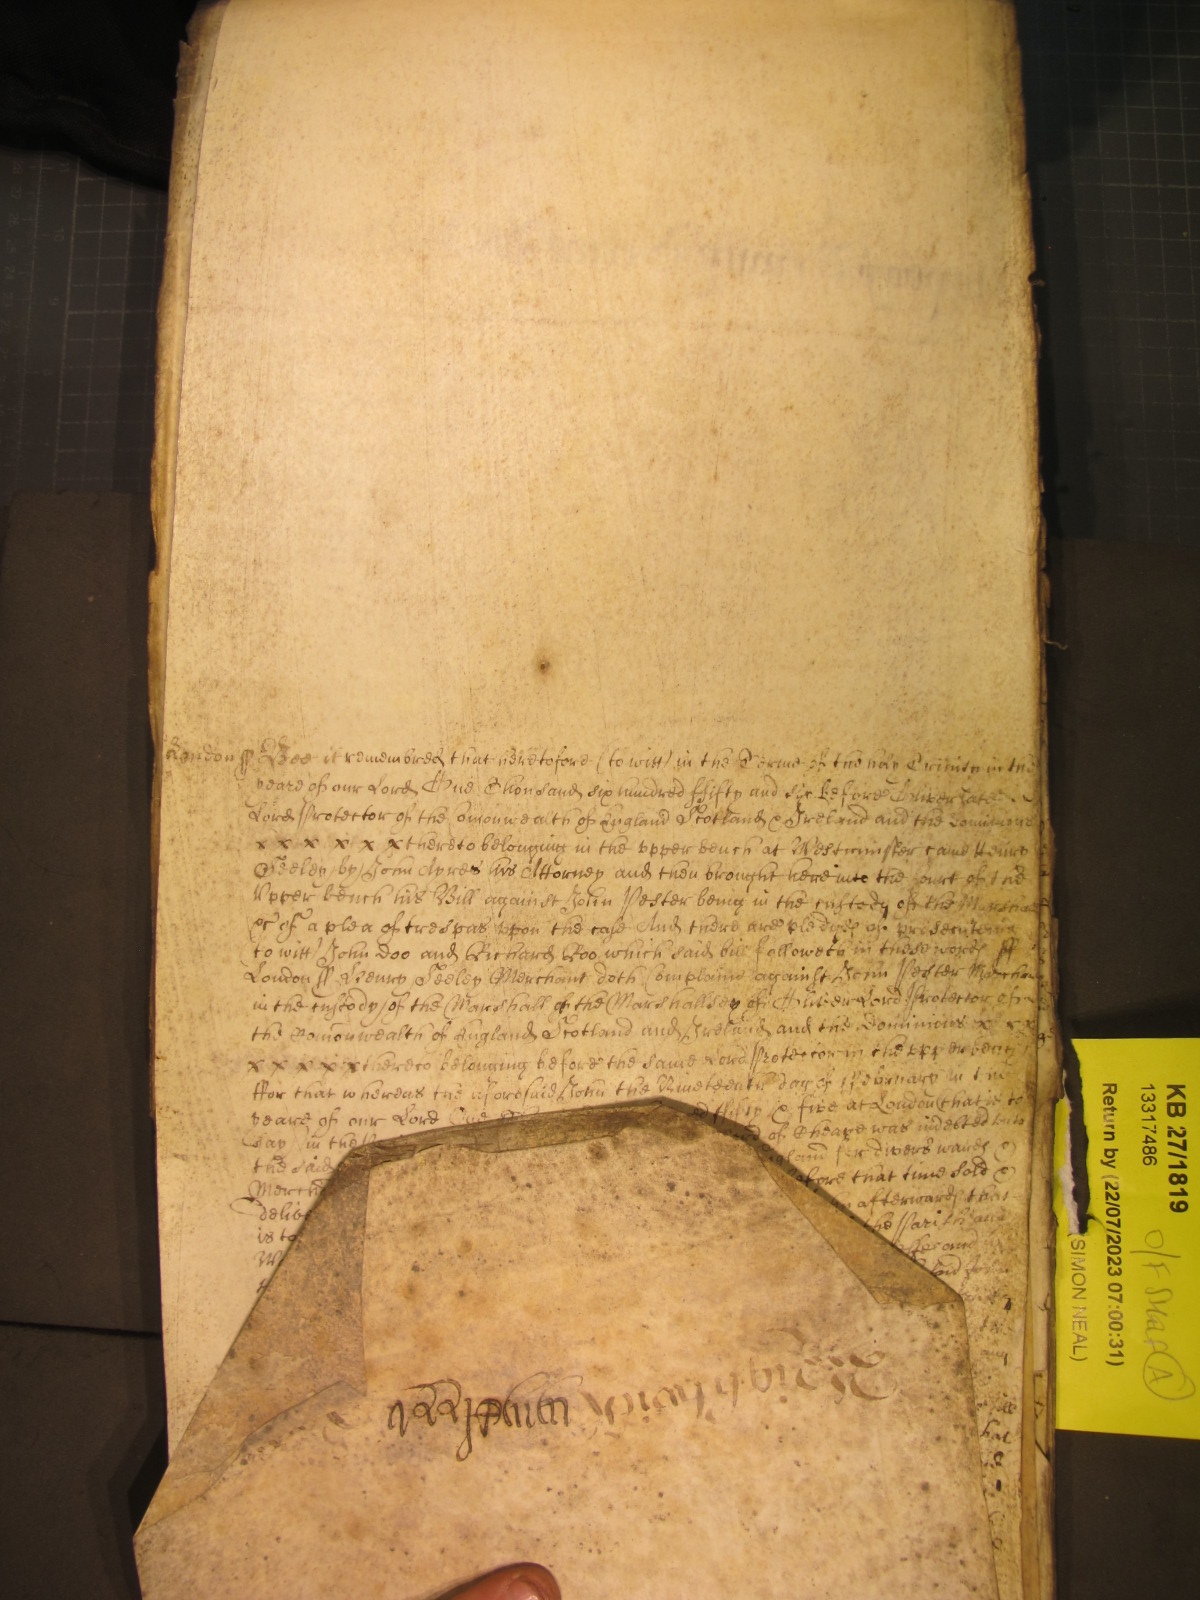 London ss Bee it remembred that heretofore (to witt) in the Terme of the holy Trinity in the
yeare of our Lord One Thousand six hundred ffifty and six before Oliver late
Lord Protector of the Comonwealth of England Scotland & Ireland and the Dominions
x x x x x x thereto belonging in the upper bench at Westminster came Henry
Seeley by John Ayres his Attorney and then brought here into the Court of the
Upper bench his Bill against John Pester being in the custody of the Marshall
&c of a plea of trespas upon the case And there are pledges of prosecuting
to witt John Doo and Richard Roo which said bill followeth in these words ss
London ss Henry Seeley Merchant doth complaine against John Pester Merchant
in the custody of the Marshall of the Marshallsey of Oliver Lord Protector of
the Comonwealth of England Scotland and Ireland and the Dominions x x x
x x x x x thereto belonging before the same Lord Protector in the upper bench
ffor that whereas the aforesaid John the Nineteenth day of ffebruary in the
yeare of our Lord One ffifty & five at London (that is to
say in the of Cheape was indebted unto
the said England for divers wares
Merch before that time sold
delive afterwards that
is to the Parish and
said John
hat
KB 27/1819
13317486
Return by (22/07/2023 07:00:31)
SIMON NEAL)
O/F
A